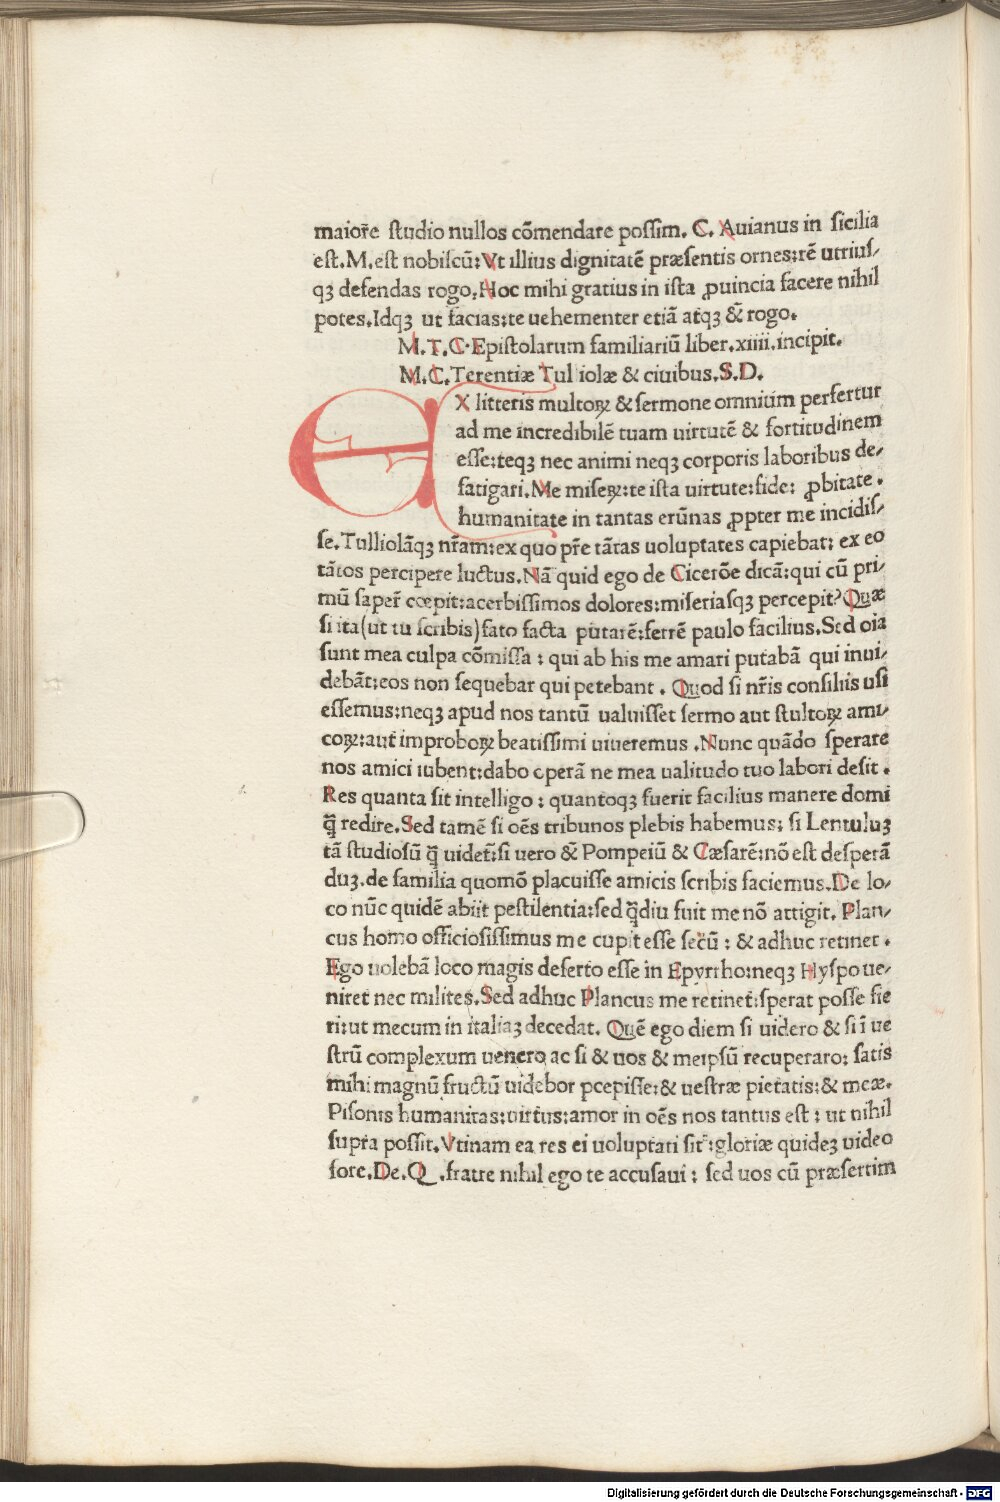 maior̃e ſtudio nullos cõmendare poſſim. C. Auianus in ſicilia
eſt. M. eſt nobiſcũ: Vt illius dignitatẽ præſentis ornes: rẽ utriuſ⸗
qꝫ defendas rogo. Hoc mihi gratius in iſta ꝓuincia facere nihil
potes. Idqꝫ ut facias: te uehementer etiã atqꝫ & rogo.
M. T. C. Epiſtolarum familiariũ liber. xiiii. incipit.
M. C. Terentiæ Tulliolæ & ciuibus. S. D.
EX litteris multoꝝ & ſermone omnium perfertur
ad me incredibilẽ tuam uirtutẽ & fortitudinem
eſſe: teqꝫ nec animi neqꝫ corporis laboribus de⸗
fatigari. Me miſeꝝ: te iſta uirtute: fide: ꝓbitate.
humanitate in tantas erũnas ꝓpter me incidiſ⸗
ſe. Tulliolãqꝫ nr̃am: ex quo pr̃e tãtas uoluptates capiebat: ex eo
tãtos percipere luctus. Nã quid ego de Cicerõe dicã: qui cũ pri⸗
mũ ſaper̃ cœpit: acerbiſſimos dolores: miſeriaſqꝫ percepit? Quæ
ſi ita (ut tu ſcribis) fato facta putarẽ: ferrẽ paulo facilius. Sed oĩa
ſunt mea culpa cõmiſſa: qui ab his me amari putabã qui inui⸗
debãt: eos non ſequebar qui petebant. Quod ſi nr̃is conſiliis uſi
eſſemus: neqꝫ apud nos tantũ ualuiſſet ſermo aut ſtultoꝝ ami⸗
coꝝ: aut improboꝝ beatiſſimi uiueremus. Nunc quãdo ſperare
nos amici iubent: dabo operã ne mea ualitudo tuo labori deſit.
Res quanta ſit intelligo: quantoqꝫ fuerit facilius manere domi
q̃ redire. Sed tamẽ ſi oẽs tribunos plebis habemus: ſi Lentuluꝫ
tã ſtudioſũ q̃ uidet̃: ſi uero & Pompeiũ & Cæſarẽ: nõ eſt deſperã
duꝫ. de familia quomõ placuiſſe amicis ſcribis faciemus. De lo⸗
co nũc quidẽ abiit peſtilentia: ſed q̃diu fuit me nõ attigit. Plan⸗
cus homo officioſiſſimus me cupit eſſe ſecũ: & adhuc retinet.
Ego uolebã loco magis deſerto eſſe in Epyrrho: neqꝫ Hyſpo ue⸗
niret nec milites. Sed adhuc Plancus me retinet: ſperat poſſe fie
ri: ut mecum in italiaꝫ decedat. Quẽ ego diem ſi uidero & ſi ĩ ue
ſtrũ complexum uenero ac ſi & uos & meipſũ recuperaro: ſatis
mihi magnũ fructũ uidebor pcepiſſe: & ueſtræ pietatis: & meæ.
Piſonis humanitas: uirtus: amor in oẽs nos tantus eſt: ut nihil
ſupra poſſit. Vtinam ea res ei uoluptati ſit: gloriæ quideꝫ uideo
fore. De. Q. fratre nihil ego te accuſaui: ſed uos cũ præſertim
Digitalisierung gefördert durch die Deutsche Forschungsgemeinschaft - DFG